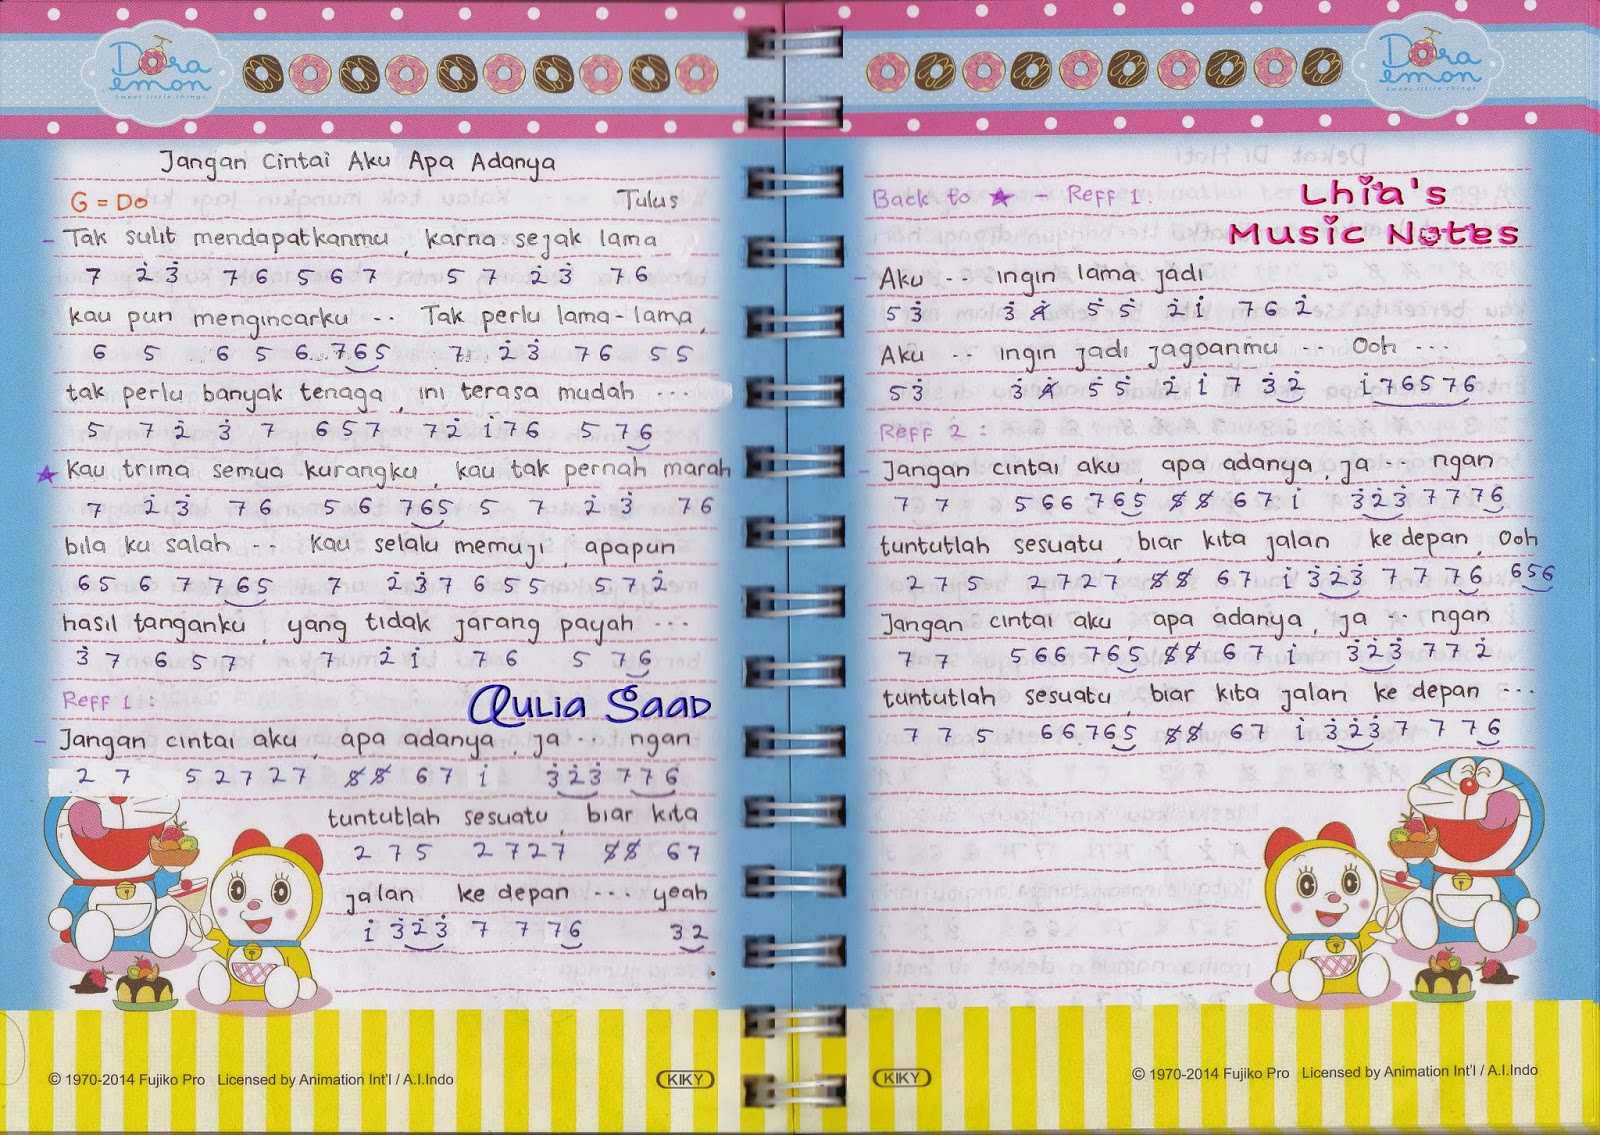 Dora emon
sweet little things
Jangan Cintai Aku Apa Adanya
G = Do Tulus
- Tak sulit mendapatkanmu, karna sejak lama
7 2̇ 3̇ 7 6 5 6 7 5 7 2̇ 3̇ 7 6
kau pun mengincarku .. Tak perlu lama-lama,
6 5 6 5 6 .. 7 6 5 7 2̇ 3̇ 7 6 5 5
tak perlu banyak tenaga, ini terasa mudah ...
5 7 2̇ 3̇ 7 6 5 7 7 2̇ 1̇ 7 6 5 7 6
★ Kau trima semua kurangku, kau tak pernah marah
7 2̇ 3̇ 7 6 5 6 7 6 5 5 7 2̇ 3̇ 7 6
bila ku salah .. kau selalu memuji, apapun
6 5 6 7 7 6 5 7 2̇ 3̇ 7 6 5 5 5 7 2̇
hasil tanganku, yang tidak jarang payah ...
3̇ 7 6 5 7 7 2̇ 1̇ 7 6 5 7 6
Reff 1 :
Aulia Saad
- Jangan cintai aku, apa adanya, ja .. ngan
2 7 5 2 7 2 7 5̸ 5̸ 6 7 1̇ 3̇ 2̇ 3̇ 7 7 6
tuntutlah sesuatu, biar kita
2 7 5 2 7 2 7 5̸ 5̸ 6 7
jalan ke depan ... yeah
1̇ 3̇ 2̇ 3̇ 7 7 7 6 3 2
© 1970-2014 Fujiko Pro Licensed by Animation Int'l / A.I.Indo
KIKY
Dora emon
sweet little things
Back to ★ - Reff 1 :
Lhia's
Music Notes
- Aku .. ingin lama jadi
5 3̇ 3̇ 4̸̇ 5̇ 5̇ 2̇ 1̇ 7 6 2̇
Aku .. ingin jadi jagoanmu .. Ooh ...
5 3̇ 3̇ 4̸̇ 5̇ 5̇ 2̇ 1̇ 7 3̇ 2̇ 1̇ 7 6 5 7 6
Reff 2 :
- Jangan cintai aku, apa adanya, ja .. ngan
7 7 5 6 6 7 6 5 5̸ 5̸ 6 7 1̇ 3̇ 2̇ 3̇ 7 7 7 6
tuntutlah sesuatu, biar kita jalan ke depan, Ooh
2 7 5 2 7 2 7 5̸ 5̸ 6 7 1̇ 3̇ 2̇ 3̇ 7 7 7 6 6 5 6
Jangan cintai aku, apa adanya, ja .. ngan
7 7 5 6 6 7 6 5 5̸ 5̸ 6 7 1̇ 3̇ 2̇ 3̇ 7 7 2̇
tuntutlah sesuatu, biar kita jalan ke depan ...
7 7 5 6 6 7 6 5 5̸ 5̸ 6 7 1̇ 3̇ 2̇ 3̇ 7 7 7 6
KIKY
© 1970-2014 Fujiko Pro Licensed by Animation Int'l / A.I.Indo